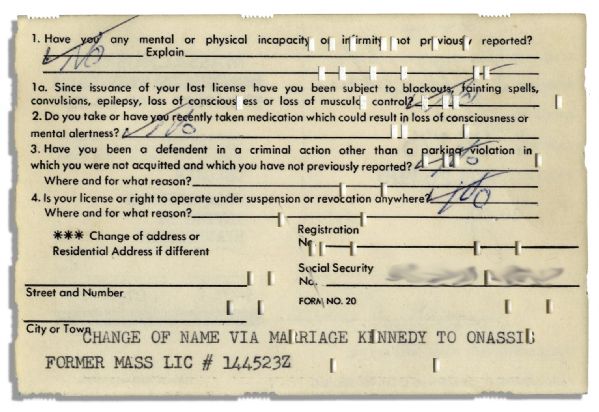 1. Have you any mental or physical incapacity or infirmity not previously reported?
No Explain
1a. Since issuance of your last license have you been subject to blackouts, fainting spells,
convulsions, epilepsy, loss of consciousness or loss of muscular control? No
2. Do you take or have you recently taken medication which could result in loss of consciousness or
mental alertness? No
3. Have you been a defendent in a criminal action other than a parking violation in
which you were not acquitted and which you have not previously reported? No
Where and for what reason?
4. Is your license or right to operate under suspension or revocation anywhere? No
Where and for what reason?
*** Change of address or
Residential Address if different
Registration
No.
Social Security
No.
Street and Number
FORM NO. 20
City or Town
CHANGE OF NAME VIA MARRIAGE KENNEDY TO ONASSIS
FORMER MASS LIC # 144523Z